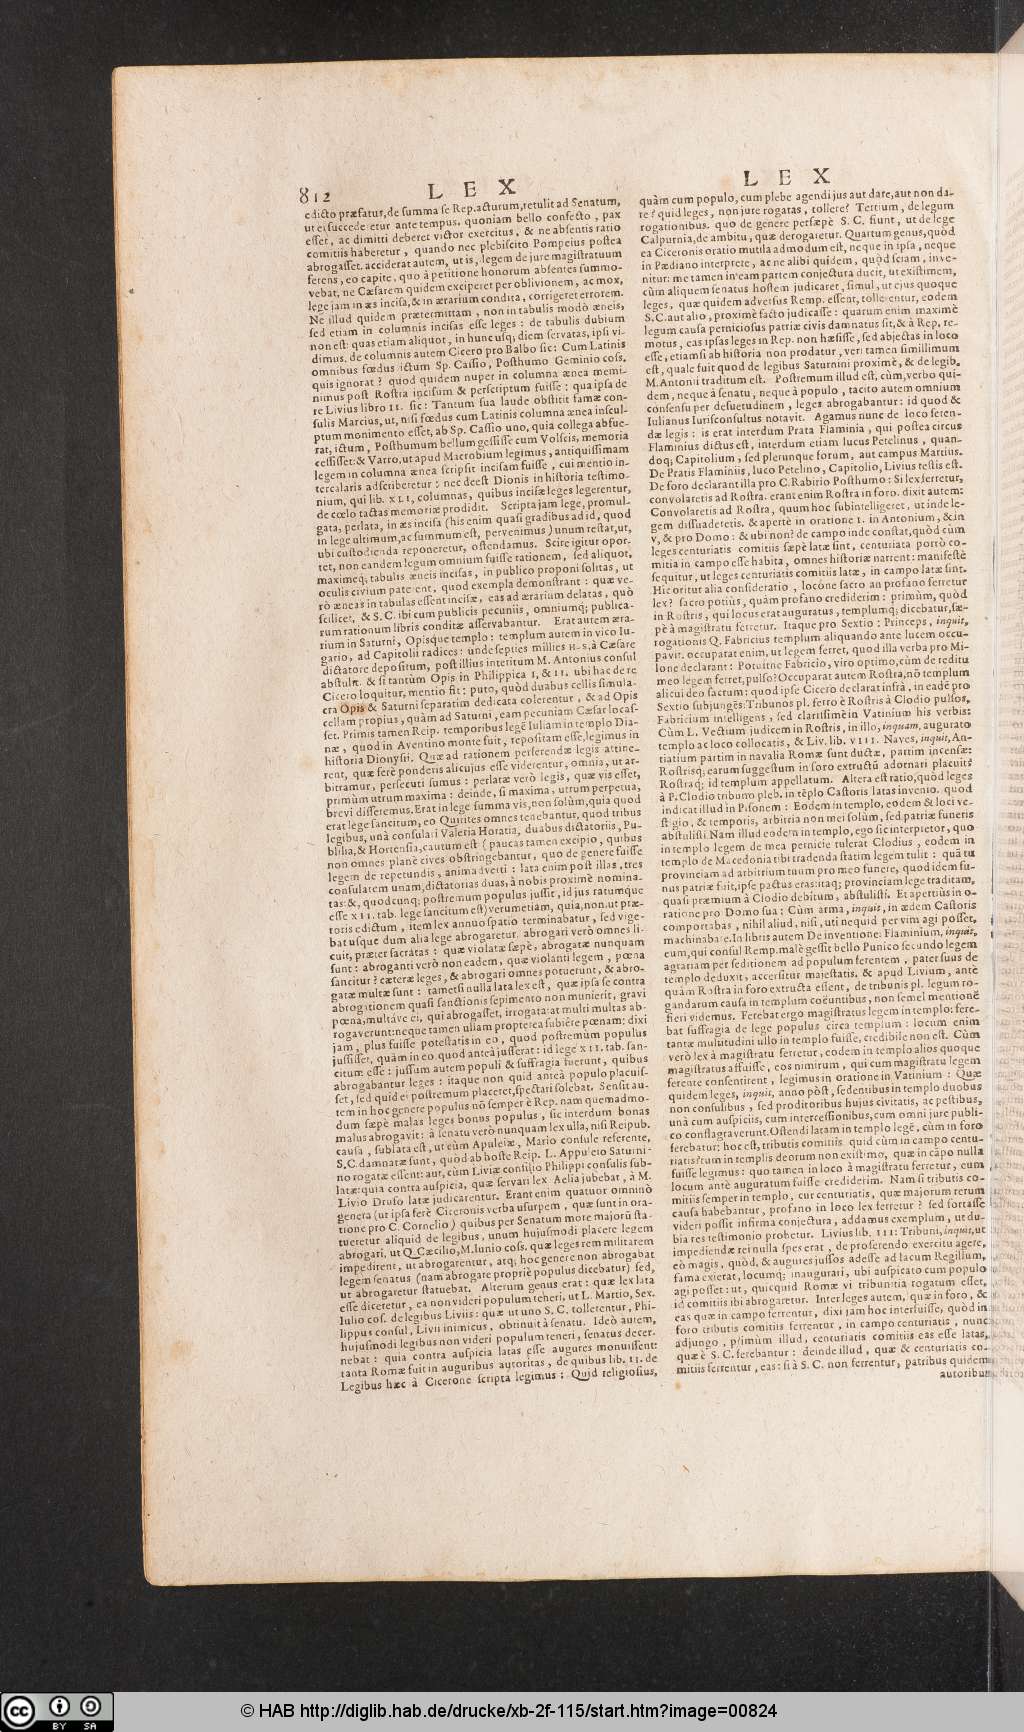 812 L E X
edicto præfatus, de summa se Rep. acturum, retulit ad Senatum,
ut ei succederetur ante tempus. quoniam bello confecto, pax
esset, ac dimitti deberet victor exercitus, & ne absentis ratio
comitiis haberetur, quando nec plebiscito Pompeius postea
abrogasset. acciderat autem, ut is, legem de jure magistratuum
ferens, eo capite, quo à petitione honorum absentes summo-
vebat, ne Cæsarem quidem exciperet per oblivionem, ac mox,
lege jam in æs incisa, & in ærarium condita, corrigeret errorem.
Ne illud quidem prætermittam, non in tabulis modò æneis,
sed etiam in columnis incisas esse leges: de tabulis dubium
non est: quas etiam aliquot, in hunc usq; diem servatas, ipsi vi-
dimus. de columnis autem Cicero pro Balbo sic: Cum Latinis
omnibus fœdus ictum Sp. Cassio, Posthumo Geminio coss.
quis ignorat? quod quidem nuper in columna ænea memi-
nimus post Rostra incisum & perscriptum fuisse: qua ipsa de
re Livius libro II. sic: Tantum sua laude obstitit famæ con-
sulis Marcius, ut, nisi fœdus cum Latinis columna ænea inscul-
ptum monimento esset, ab Sp. Cassio uno, quia collega abfue-
rat, ictum, Posthumum bellum gessisse cum Volscis, memoria
cessisset: & Varro, ut apud Macrobium legimus, antiquissimam
legem in columna ænea scripsit incisam fuisse, cui mentio in-
tercalaris adscriberetur: nec deest Dionis in historia testimo-
nium, qui lib. XLI, columnas, quibus incisæ leges legerentur,
de cœlo tactas memoriæ prodidit. Scripta jam lege, promul-
gata, perlata, in æs incisa (his enim quasi gradibus ad id, quod
in lege ultimum, ac summum est, pervenimus) unum restat, ut,
ubi custodienda reponeretur, ostendamus. Scire igitur opor-
tet, non eandem legum omnium fuisse rationem, sed aliquot,
maximeq; tabulis æneis incisas, in publico proponi solitas, ut
oculis civium paterent, quod exempla demonstrant: quæ ve-
rò æneas in tabulas essent incisæ, eas ad ærarium delatas, quò
scilicet, & S. C. ibi cum publicis pecuniis, omniumq; publica-
rum rationum libris conditæ asservabantur. Erat autem æra-
rium in Saturni, Opisque templo: templum autem in vico Ju-
gario, ad Capitolii radices: unde septies millies H-S, à Cæsare
dictatore depositum, post illius interitum M. Antonius consul
abstulit. & si tantùm Opis in Philippica I, & II. ubi hac de re
Cicero loquitur, mentio fit: puto, quòd duabus cellis simula-
cra Opis & Saturni separatim dedicata colerentur, & ad Opis
cellam propius, quàm ad Saturni, eam pecuniam Cæsar locas-
set. Primis tamen Reip. temporibus legē Juliam in templo Dia-
næ, quod in Aventino monte fuit, repositam esse, legimus in
historia Dionysii. Quæ ad rationem perferendæ legis attine-
rent, quæ ferè ponderis alicujus esse viderentur, omnia, ut ar-
bitramur, persecuti sumus: perlatæ verò legis, quæ vis esset,
primùm utrum maxima: deinde, si maxima, utrum perpetua,
brevi disseremus. Erat in lege summa vis, non solùm, quia quod
erat lege sancitum, eo Quirites omnes tenebantur, quod tribus
legibus, unâ consulari Valeria Horatia, duabus dictatoriis, Pu-
blilia, & Hortensia, cautum est (paucas tamen excipio, quibus
non omnes planè cives obstringebantur, quo de genere fuisse
legem de repetundis, animadverti: lata enim post illas, tres
consulatem unam, dictatorias duas, à nobis proximè nomina-
tas: &, quodcunq; postremum populus jussit, id jus ratumque
esse XII. tab. lege sancitum est) verumetiam, quia, non, ut præ-
toris edictum, item lex annuo spatio terminabatur, sed vige-
bat usque dum alia lege abrogaretur. abrogari verò omnes li-
cuit, præter sacratas: quæ violatæ sæpè, abrogatæ nunquam
sunt: abroganti verò non eadem, quæ violanti legem, pœna
sancitur? cæteræ leges, & abrogari omnes potuerunt, & abro-
gatæ multæ sunt: tametsi nulla lata lex est, quæ ipsa se contra
abrogationem quasi sanctionis sepimento non munierit, gravi
pœna, multáve ei, qui abrogasset, irrogata: at multi multas ab-
rogaverunt: neque tamen ullam propterea subiêre pœnam: dixi
jam, plus fuisse potestatis in eo, quod postremùm populus
jussisset, quàm in eo quod anteà jusserat: id lege XII. tab. san-
citum esse: jussum autem populi & suffragia fuerunt, quibus
abrogabantur leges: itaque non quid anteà populo placuis-
set, sed quid ei postremum placeret, spectari solebat. Sensit au-
tem in hoc genere populus nō semper è Rep. nam quemadmo-
dum sæpè malas leges bonus populus, sic interdum bonas
malus abrogavit: à senatu verò nunquam lex ulla, nisi Reipub.
causa, sublata est, ut eùm Apuleiæ, Mario consule referente,
S.C. damnatæ sunt, quòd ab hoste Reip. L. Appuleio Saturni-
no rogatæ essent: aut, cùm Liviæ consilio Philippi consulis sub-
latæ: quia contra auspicia, quæ servari lex Aelia jubebat, à M.
Livio Druso latæ judicarentur. Erant enim quatuor omninò
genera (ut ipsa ferè Ciceronis verba usurpem, quæ sunt in ora-
tione pro C. Cornelio) quibus per Senatum more majorū sta-
tueretur aliquid de legibus, unum hujusmodi placere legem
abrogari, ut Q. Cæcilio, M. Junio coss. quæ leges rem militarem
impedirent, ut abrogarentur, atq; hoc genere non abrogabat
legem senatus (nam abrogare propriè populus dicebatur) sed,
ut abrogaretur statuebat. Alterum genus erat: quæ lex lata
esse diceretur, ea non videri populum teneri, ut L. Martio, Sex.
Julio cos. de legibus Liviis: quæ ut uno S. C. tollerentur, Phi-
lippus consul, Livii inimicus, obtinuit à senatu. Ideò autem,
hujusmodi legibus non videri populum teneri, senatus decer-
nebat: quia contra auspicia latas esse augures monuissent:
tanta Romæ fuit in auguribus autoritas, de quibus lib. II. de
Legibus hæc à Cicerone scripta legimus: Quid religiosius,
L E X
quàm cum populo, cum plebe agendi jus aut dare, aut non da-
re? quid leges, non jure rogatas, tollere? Tertium, de legum
rogationibus. quo de genere persæpè S. C. fiunt, ut de lege
Calpurnia, de ambitu, quæ derogaretur. Quartum genus, quòd
ea Ciceronis oratio mutila admodum est, neque in ipsa, neque
in Pædiano interprete, ac ne alibi quidem, quòd sciam, inve-
nitur: me tamen in eam partem conjectura ducit, ut existimem,
cùm aliquem senatus hostem judicaret, simul, ut ejus quoque
leges, quæ quidem adversus Remp. essent, tollerentur, eodem
S. C. aut alio, proximè facto judicasse: quarum enim maximè
legum causa perniciosus patriæ civis damnatus sit, & à Rep. re-
motus, eas ipsas leges in Rep. non hæsisse, sed abjectas in loco
esse, etiamsi ab historia non prodatur, veri tamen simillimum
est, quale fuit quod de legibus Saturnini proximè, & de legib.
M. Antonii traditum est. Postremum illud est, cùm, verbo qui-
dem, neque à senatu, neque à populo, tacito autem omnium
consensu per desuetudinem, leges abrogabantur: id quod &
Julianus Jurisconsultus notavit. Agamus nunc de loco feren-
dæ legis: is erat interdum Prata Flaminia, qui postea circus
Flaminius dictus est, interdum etiam lucus Petelinus, quan-
doq; Capitolium, sed plerunque forum, aut campus Martius.
De Pratis Flaminiis, luco Petelino, Capitolio, Livius testis est.
De foro declarant illa pro C. Rabirio Posthumo: Si lex ferretur,
convolaretis ad Rostra. erant enim Rostra in foro. dixit autem:
Convolaretis ad Rostra, quum hoc subintelligeret, ut inde le-
gem dissuaderetis. & apertè in oratione I. in Antonium, & in
V, & pro Domo: & ubi non? de campo inde constat, quòd cùm
leges centuriatis comitiis sæpè latæ sint, centuriata porrò co-
mitia in campo esse habita, omnes historiæ narrent: manifestè
sequitur, ut leges centuriatis comitiis latæ, in campo latæ sint.
Hic oritur alia consideratio, locóne sacro an profano ferretur
lex? sacro potiùs, quàm profano crediderim: primùm, quòd
in Rostris, qui locus erat auguratus, templumq; dicebatur, sæ-
pè à magistratu ferretur. Itaque pro Sextio: Princeps, inquit,
rogationis Q. Fabricius templum aliquando ante lucem occu-
pavit. occuparat enim, ut legem ferret, quod illa verba pro Mi-
lone declarant: Potuitne Fabricio, viro optimo, cùm de reditu
meo legem ferret, pulso? Occuparat autem Rostra, nō templum
alicui deo sactum: quod ipse Cicero declarat infrà, in eadē pro
Sextio subjungēs: Tribunos pl. ferro è Rostris à Clodio pulsos,
Fabricium intelligens, sed clarissimè in Vatinium his verbis:
Cùm L. Vectium judicem in Rostris, in illo, inquam, augurato
templo ac loco collocatis, & Liv. lib. VIII. Naves, inquit, An-
tiatium partim in navalia Romæ sunt ductæ, partim incensæ:
Rostrisq; earum suggestum in foro extructū adornari placuit:
Rostraq; id templum appellatum. Altera est ratio, quòd leges
à P. Clodio tribuno pleb. in tēplo Castoris latas invenio. quod
indicat illud in Pisonem: Eodem in templo, eodem & loci ve-
stigio, & temporis, arbitria non mei solùm, sed patriæ funeris
abstulisti. Nam illud eodem in templo, ego sic interpretor, quo
in templo legem de mea pernicie tulerat Clodius, eodem in
templo de Macedonia tibi tradenda statim legem tulit: quā tu
provinciam ad arbitrium tuum pro meo funere, quod idem fu-
nus patriæ fuit, ipse pactus eras: itaq; provinciam lege traditam,
quasi præmium à Clodio debitum, abstulisti. Et apertiùs in o-
ratione pro Domo sua: Cùm arma, inquit, in ædem Castoris
comportabas, nihil aliud, nisi, uti nequid per vim agi posset,
machinabare. In libris autem De inventione: Flaminium, inquit,
eum, qui consul Remp. malè gessit bello Punico secundo legem
agrariam per seditionem ad populum ferentem, pater suus de
templo deduxit, accersitur majestatis. & apud Livium, antè
quàm Rostra in foro extructa essent, de tribunis pl. legum ro-
gandarum causa in templum coëuntibus, non semel mentionē
fieri videmus. Ferebat ergo magistratus legem in templo: fere-
bat suffragia de lege populus circa templum: locum enim
tantæ multitudini ullo in templo fuisse, credibile non est. Cùm
verò lex à magistratu ferretur, eodem in templo alios quoque
magistratus affuisse, eos nimirum, qui cum magistratu legem
ferente consentirent, legimus in oratione in Vatinium: Quæ
quidem leges, inquit, anno pòst, sedentibus in templo duobus
non consulibus, sed proditoribus hujus civitatis, ac pestibus,
unà cum auspiciis, cum intercessionibus, cum omni jure publi-
co conflagraverunt. Ostendi latam in templo legē, cùm in foro
ferebatur: hoc est, tributis comitiis. quid cùm in campo centu-
riatis? tum in templis deorum non existimo, quæ in cāpo nulla
fuisse legimus: quo tamen in loco à magistratu ferretur, eum
locum antè auguratum fuisse crediderim. Nam si tributis co-
mitiis semper in templo, cur centuriatis, quæ majorum rerum
causa habebantur, profano in loco lex ferretur? sed fortasse
videri possit infirma conjectura, addamus exemplum, ut du-
bia res testimonio probetur. Livius lib. III: Tribuni, inquit, ut
impediendæ rei nulla spes erat, de proferendo exercitu agere,
eò magis, quòd, & augures jussos adesse ad lacum Regillum,
fama exierat, locumq; inaugurari, ubi auspicato cum populo
agi posset: ut, quicquid Romæ vi tribunitia rogatum esset,
id comitiis ibi abrogaretur. Inter leges autem, quæ in foro, &
eas quæ in campo ferrentur, dixi jam hoc interfuisse, quòd in
foro tributis comitiis ferrentur, in campo centuriatis, nunc
adjungo, primùm illud, centuriatis comitiis eas esse latas,
quæ è S. C. ferebantur: deinde illud, quæ & centuriatis co-
mitiis ferrentur, eas: si à S. C. non ferrentur, patribus quidem
autoribus
© HAB http://diglib.hab.de/drucke/xb-2f-115/start.htm?image=00824
cc BY SA